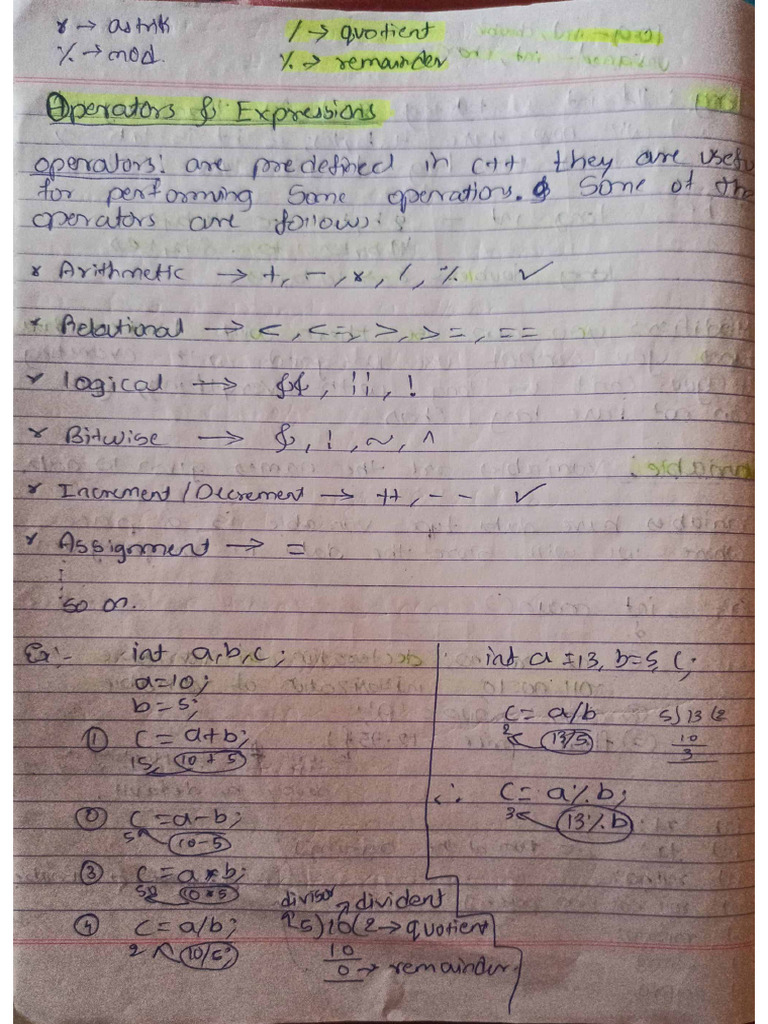 * → astrik / → quotient
% → mod. % → remainder
Operators & Expressions
operators: are predefined in c++ they are usefu
for performing some operations. Some of the
operators are follows:
* Arithmetic → +, -, *, /, % ✓
* Relational → <, <=, >, >=, ==
* Logical → &&, ||, !
* Bitwise → &, !, ~, ^
* Increment / Decrement → ++, -- ✓
* Assignment → =
so on.
Ex:- int a,b,c;
a=10;
b=5;
① c = a+b;
15 ← 10 + 5
② c = a-b;
5 ← 10-5
③ c = a*b;
50 ← 10*5
④ c = a/b;
2 ← 10/5;
divisor → divident
5)10(2 → quotient
10
0 → remainder
int a=13, b=5, c;
c = a/b 5)13(2
2 ← 13/5 10
3
∴ c = a%b;
3 ← 13%b